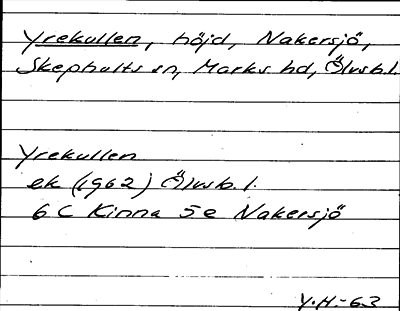 Yrekullen, höjd, Nakersjö,
Skephults sn, Marks hd, Älvsb.l.
Yrekullen
ek (1962) Älvsb. l.
6 C Kinna 5e Nakersjö
Y.H.-63